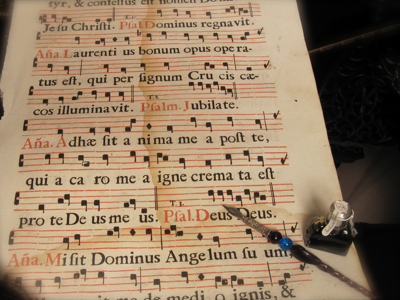 tyr, & confessus est nomen Domi
Jesu Christi. Psal. Dominus regnavit.
Aña. Laurenti us bonum opus ope ra-
tus est, qui per signum Cru cis cæ-
cos illuminavit. Psalm. Jubilate.
Aña. Adhæ sit a nima me a post te,
qui a ca ro me a igne crema ta est
pro te De us me us. Psal. Deus Deus.
Aña. Misit Dominus Ange lum su um,
me de medi o ignis, &